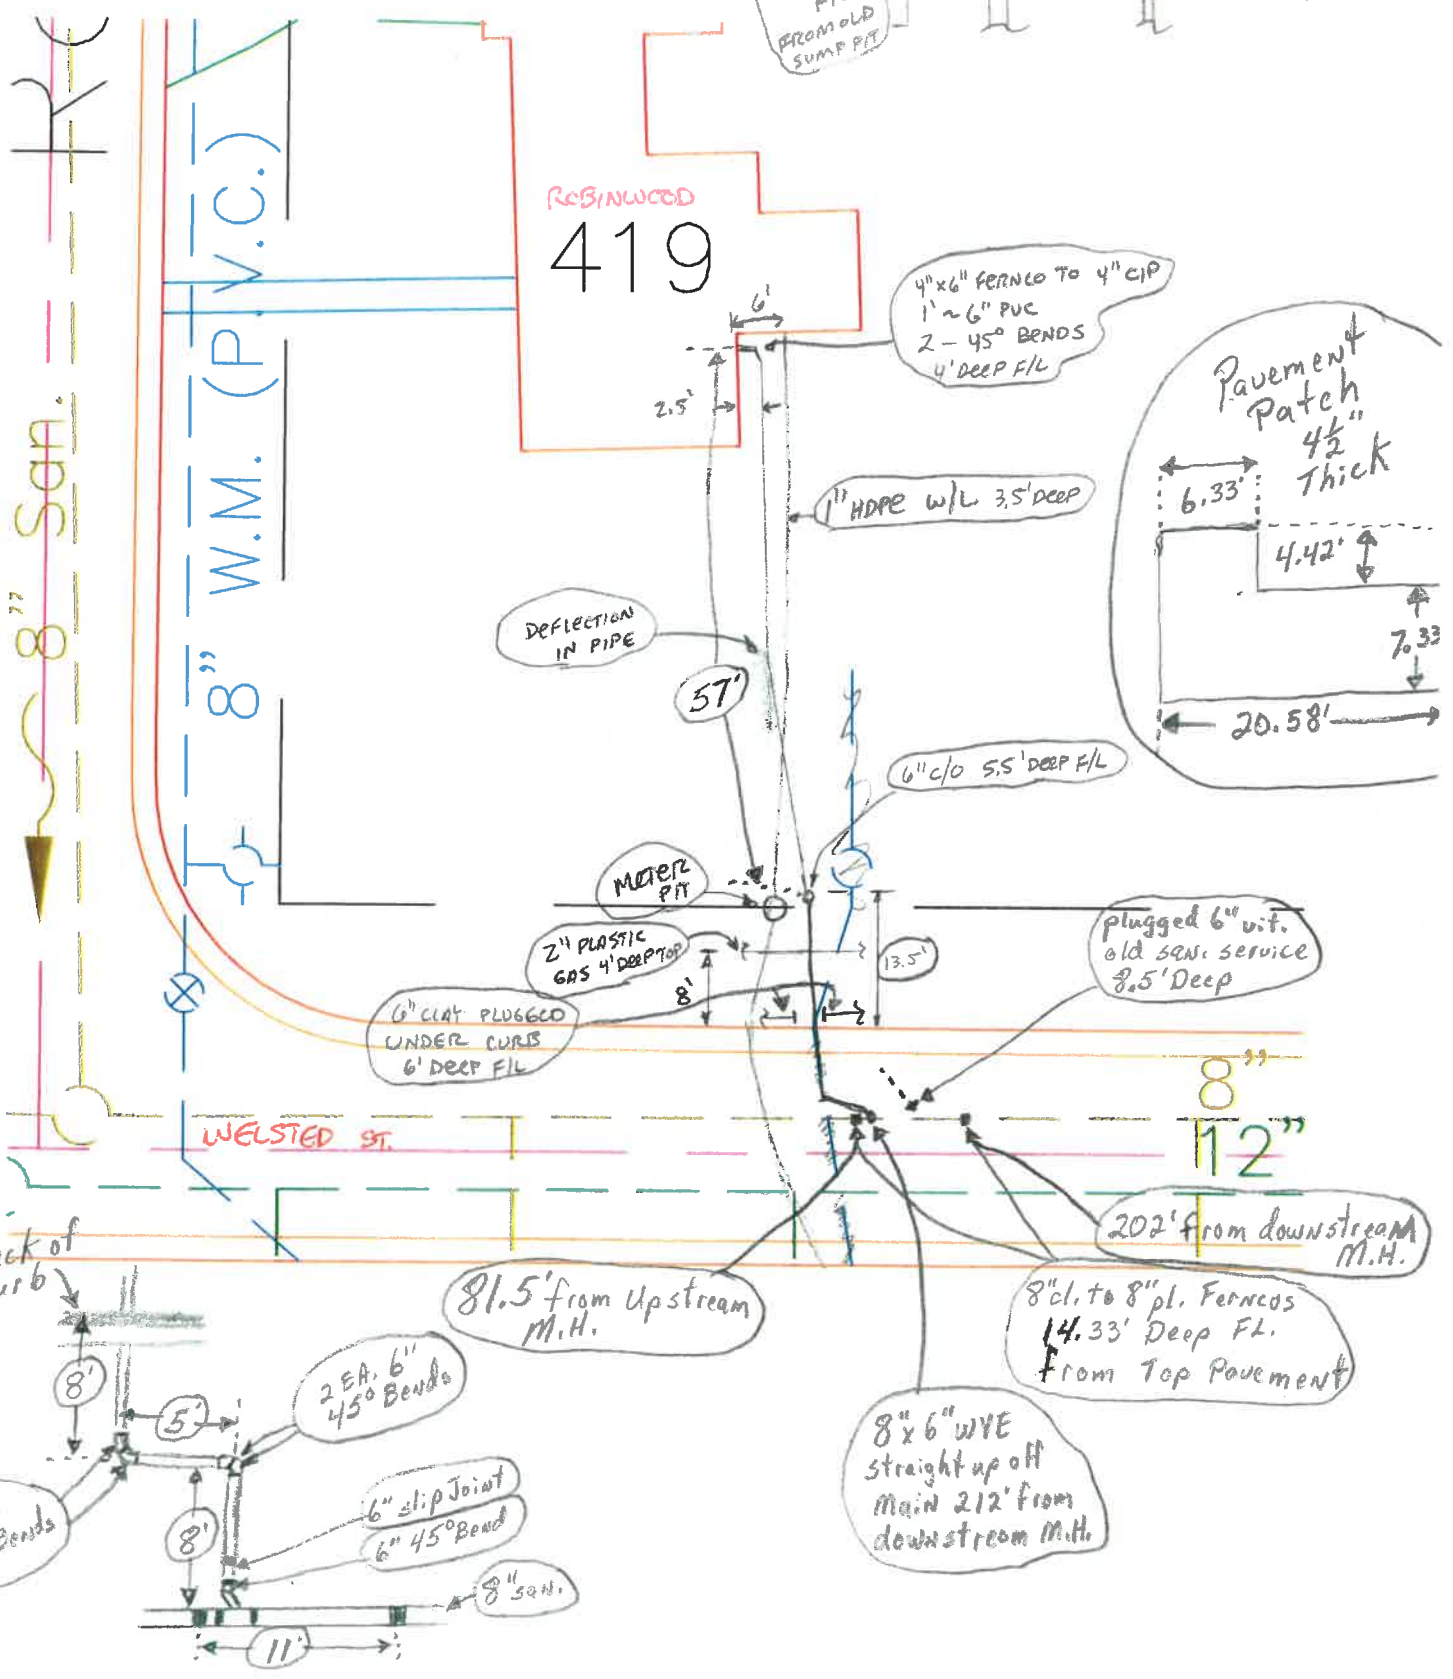 FROM OLD
SUMP PIT
8" San.
8" W.M. (P.V.C.)
ROBINWOOD
419
6'
4"x6" FERNCO TO 4" CIP
1' ~ 6" PVC
2 - 45° BENDS
4' DEEP F/L
2.5'
Pavement
Patch
4½"
Thick
6.33'
4.42'
7.33
20.58'
1" HDPE W/L 3.5' DEEP
DEFLECTION
IN PIPE
57'
6" C/O 5.5' DEEP F/L
METER
PIT
2" PLASTIC
GAS 4' DEEP TOP
8'
13.5'
plugged 6" vit.
old san. service
8.5' Deep
6" CLAY PLUGGED
UNDER CURB
6' DEEP F/L
8"
12"
WELSTED ST.
202' from downstream
M.H.
81.5' from Upstream
M.H.
8" cl. to 8" pl. Ferncos
14.33' Deep FL.
from Top Pavement
8"x6" WYE
straight up off
main 212' from
downstream M.H.
ck of
urb
8'
5'
2 EA. 6"
45° Bends
Bends
8'
6" slip Joint
6" 45° Bend
8" san.
11'